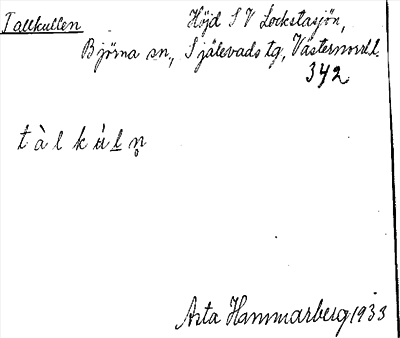 Tallkullen Höjd SV Lockstasjön,
Björna sn., Själevads tg, Västernorrl. l.
342
t à l k ú l n̥
Asta Hammarberg 1933